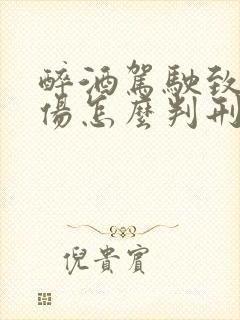 醉酒駕駛致
傷怎麼判刑
倪貴賓